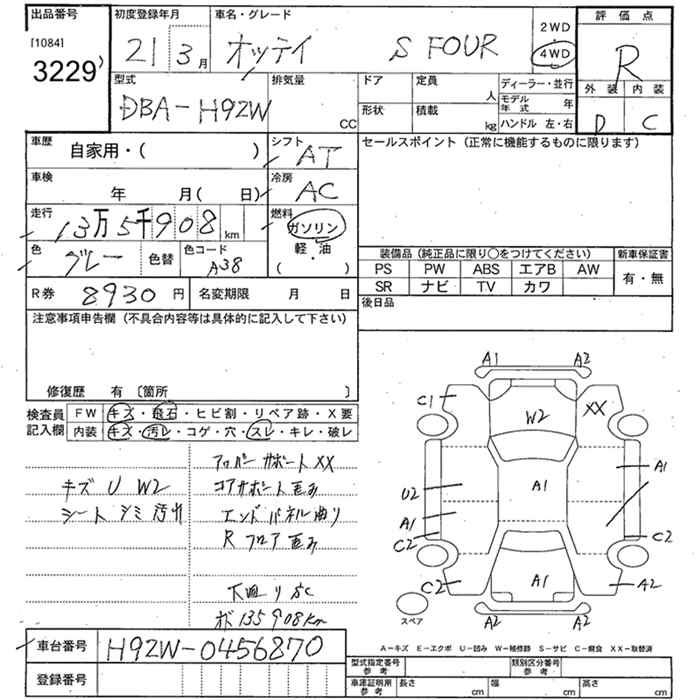 出品番号
[1084]
3229
初度登録年月
21 3月
車名・グレード
オッティ S FOUR
2WD
4WD
評価点
R
外装 内装
D C
型式
DBA-H92W
排気量
CC
ドア
定員
人
形状
積載
kg
ディーラー・並行
モデル年式 年
ハンドル 左・右
車歴
自家用・( )
シフト
AT
セールスポイント(正常に機能するものに限ります)
車検
年 月( 日)
冷房
AC
走行
13万5千908km
燃料
ガソリン
軽・油
( )
色
グレー
色替
色コード
A38
装備品(純正品に限り○をつけてください)
新車保証書
PS PW ABS エアB AW
SR ナビ TV カワ
有・無
R券 8930円
名変期限 月 日
後日品
注意事項申告欄(不具合内容等は具体的に記入して下さい)
修復歴 有 〔箇所 〕
検査員記入欄
FW キズ・飛石・ヒビ割・リペア跡・X要
内装 キズ・汚レ・コゲ・穴・スレ・キレ・破レ
キズ U W2
シート シミ 汚れ
アッパーサポート XX
コアサポート 歪み
エンドパネル 曲り
R フロア 歪み
下廻り S.C
メ 135908km
A1 A2
C1 XX
W2
A1
U2 A1
A1
C2 C2
C2 A1 A2
A2 A2
スペア
A-キズ E-エクボ U-凹み W-補修跡 S-サビ C-腐食 XX-取替済
車台番号 H92W-0456870
登録番号
型式指定番号 参考
類別区分番号 参考
車庫証明用 参考
長さ cm 幅 cm 高さ cm